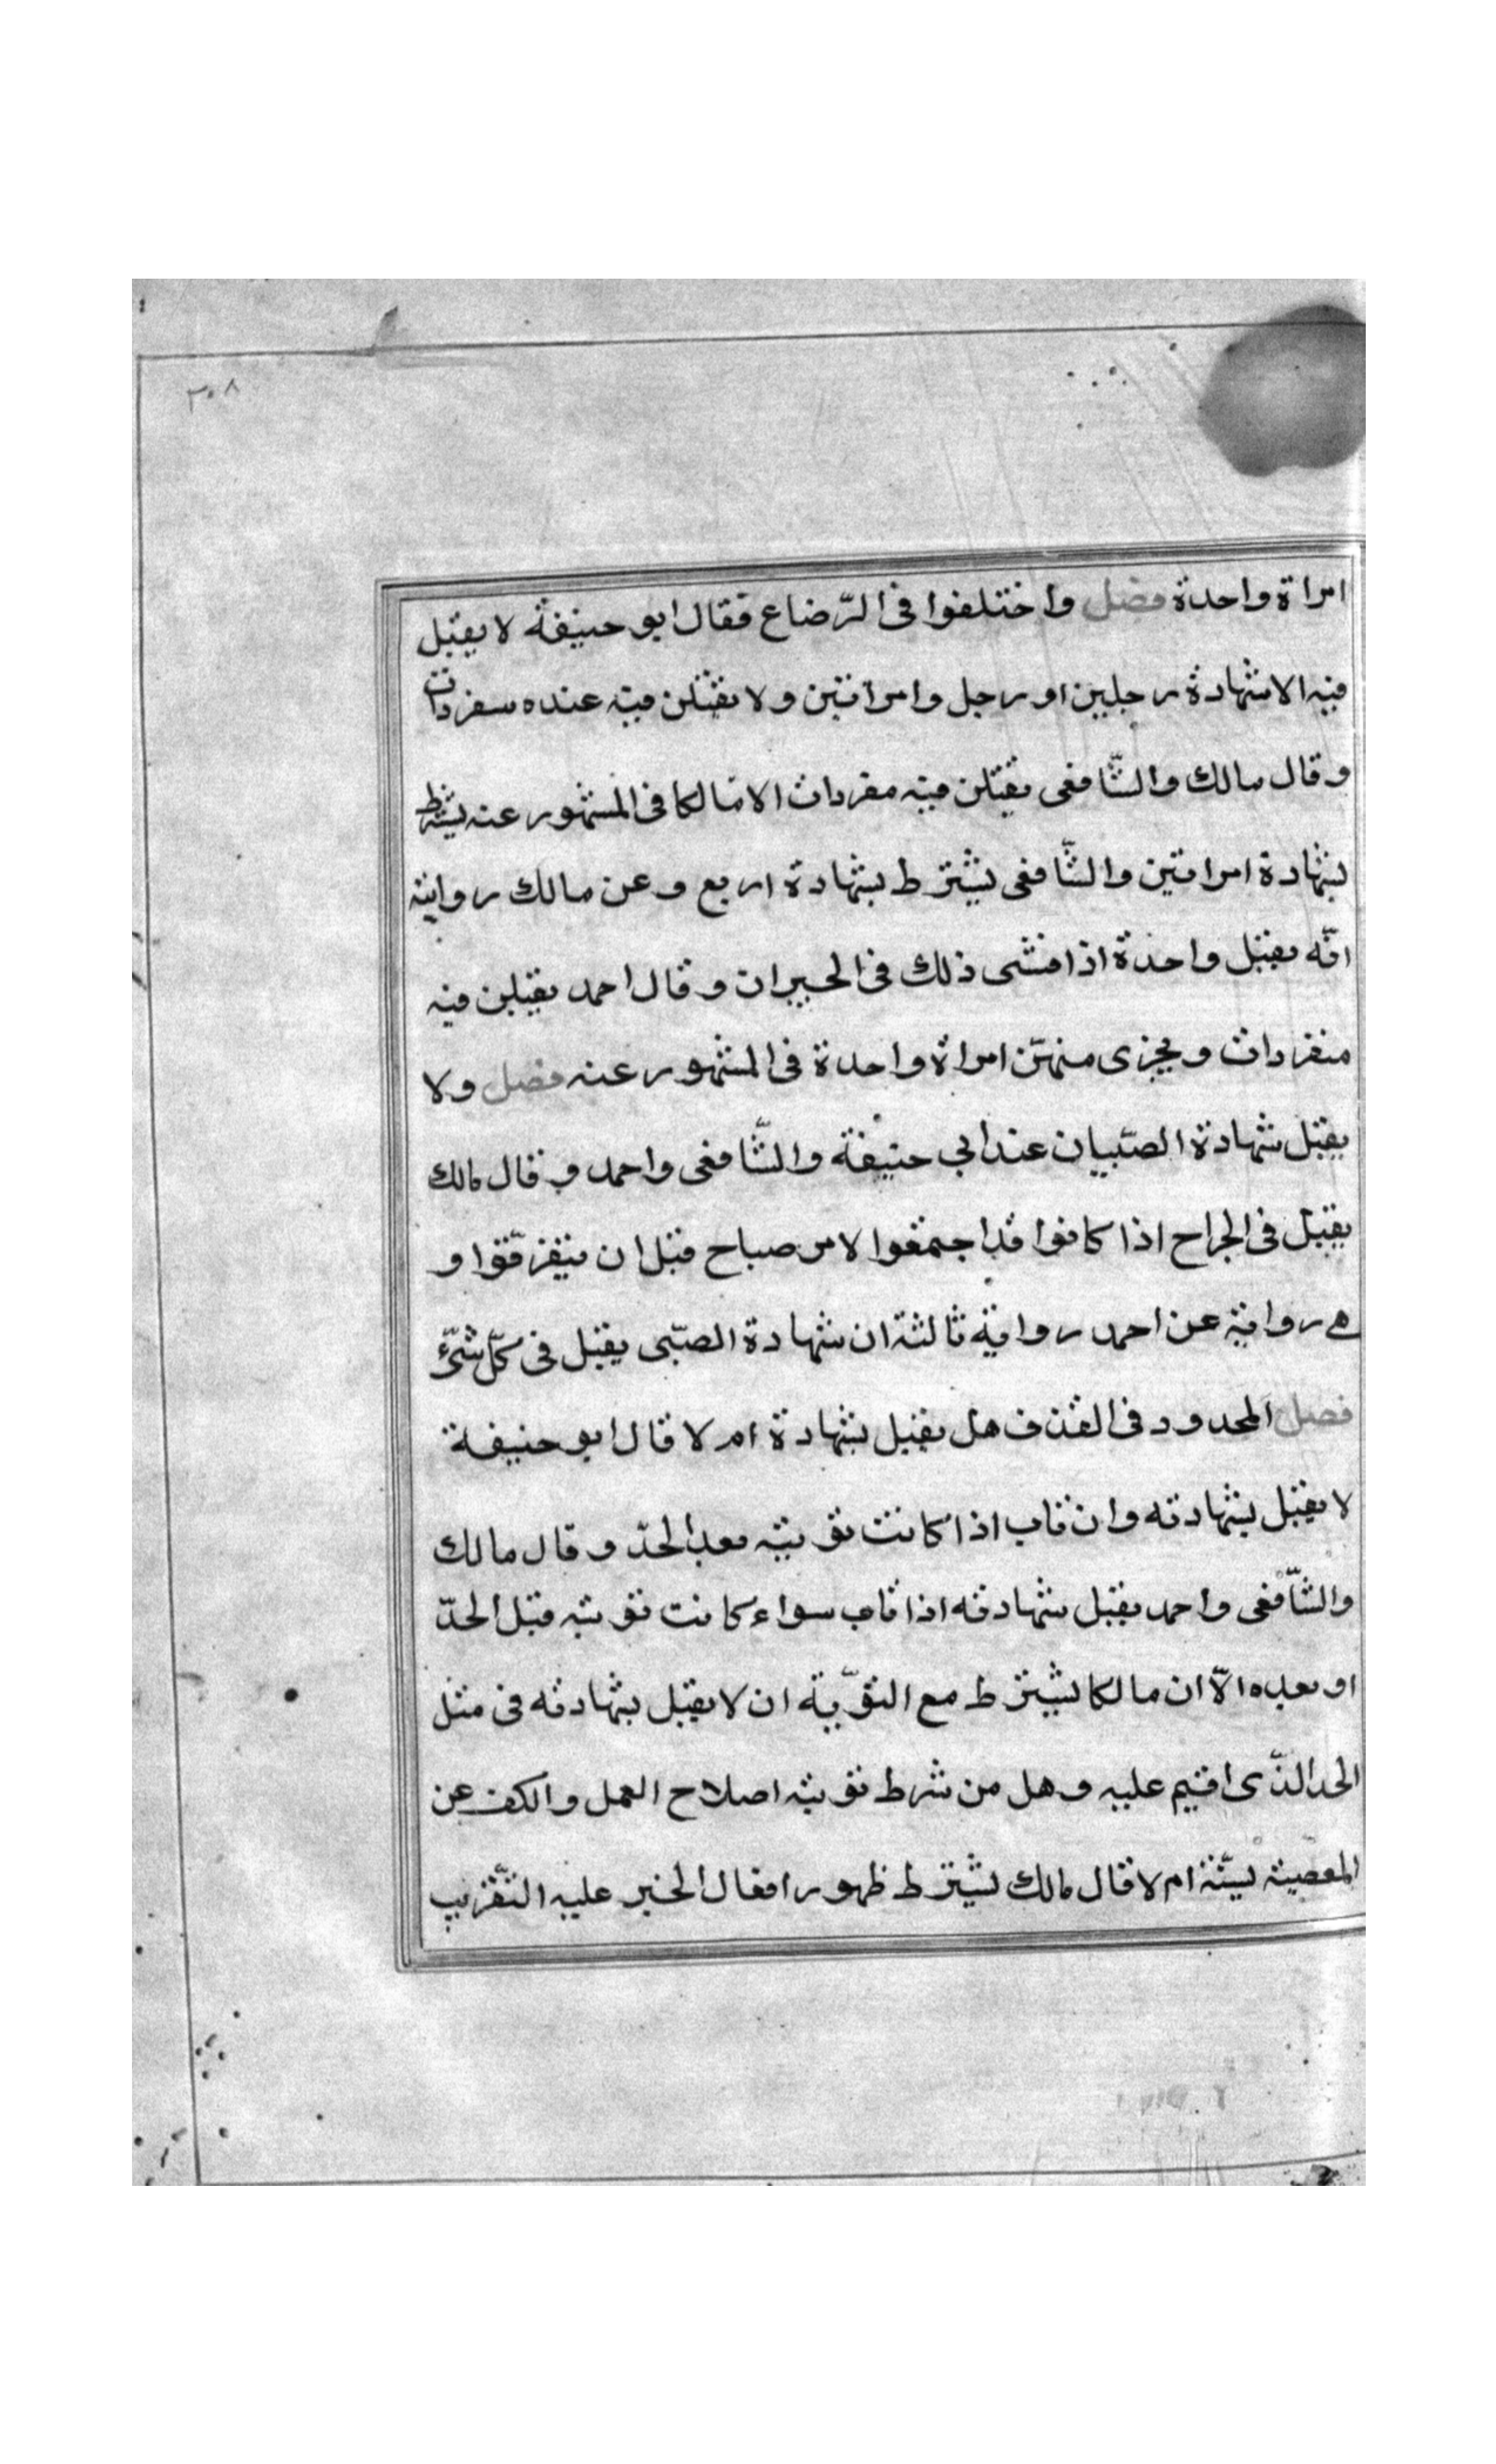 ٣٠٨
امراة واحدة فصل واختلفوا فى الرّضاع فقال ابو حنيفة لا يقبل
فيه الا شهادة رجلين او رجل وامراتين ولا يقبلن فيه عنده منفردات
وقال مالك والشّافعى يقبلن فيه مفردات الا مالكا فى المشهور عنه يشترط
شهادة امراتين والشّافعى يشترط شهادة اربع وعن مالك رواية
انّه يقبل واحدة اذا فشى ذلك فى الجيران وقال احمد يقبلن فيه
منفردات ويجزى منهنّ امراة واحدة فى المشهور عنه فصل ولا
يقبل شهادة الصّبيان عند ابى حنيفة والشّافعى واحمد وقال مالك
يقبل فى الجراح اذا كانوا قد اجتمعوا لامر صباح قبل ان يتفرّقوا و
هے رواية عن احمد رواية ثالثة ان شهادة الصّبى يقبل فى كلّ شىّء
فصل المحدود فى القذف هل يقبل شهادة ام لا قال ابو حنيفة
لا يقبل شهادته وان تاب اذا كانت توبته بعد الحدّ وقال مالك
والشّافعى واحمد يقبل شهادته اذا تاب سواء كانت توبته قبل الحدّ
او بعده الّا ان مالكا يشترط مع التوّبة ان لا يقبل شهادته فى مثل
الحد الذّى اقيم عليه وهل من شرط توبته اصلاح العمل والكف عن
المعصية سنّة ام لا قال مالك يشترط ظهور افعال الخير عليه التّقريب